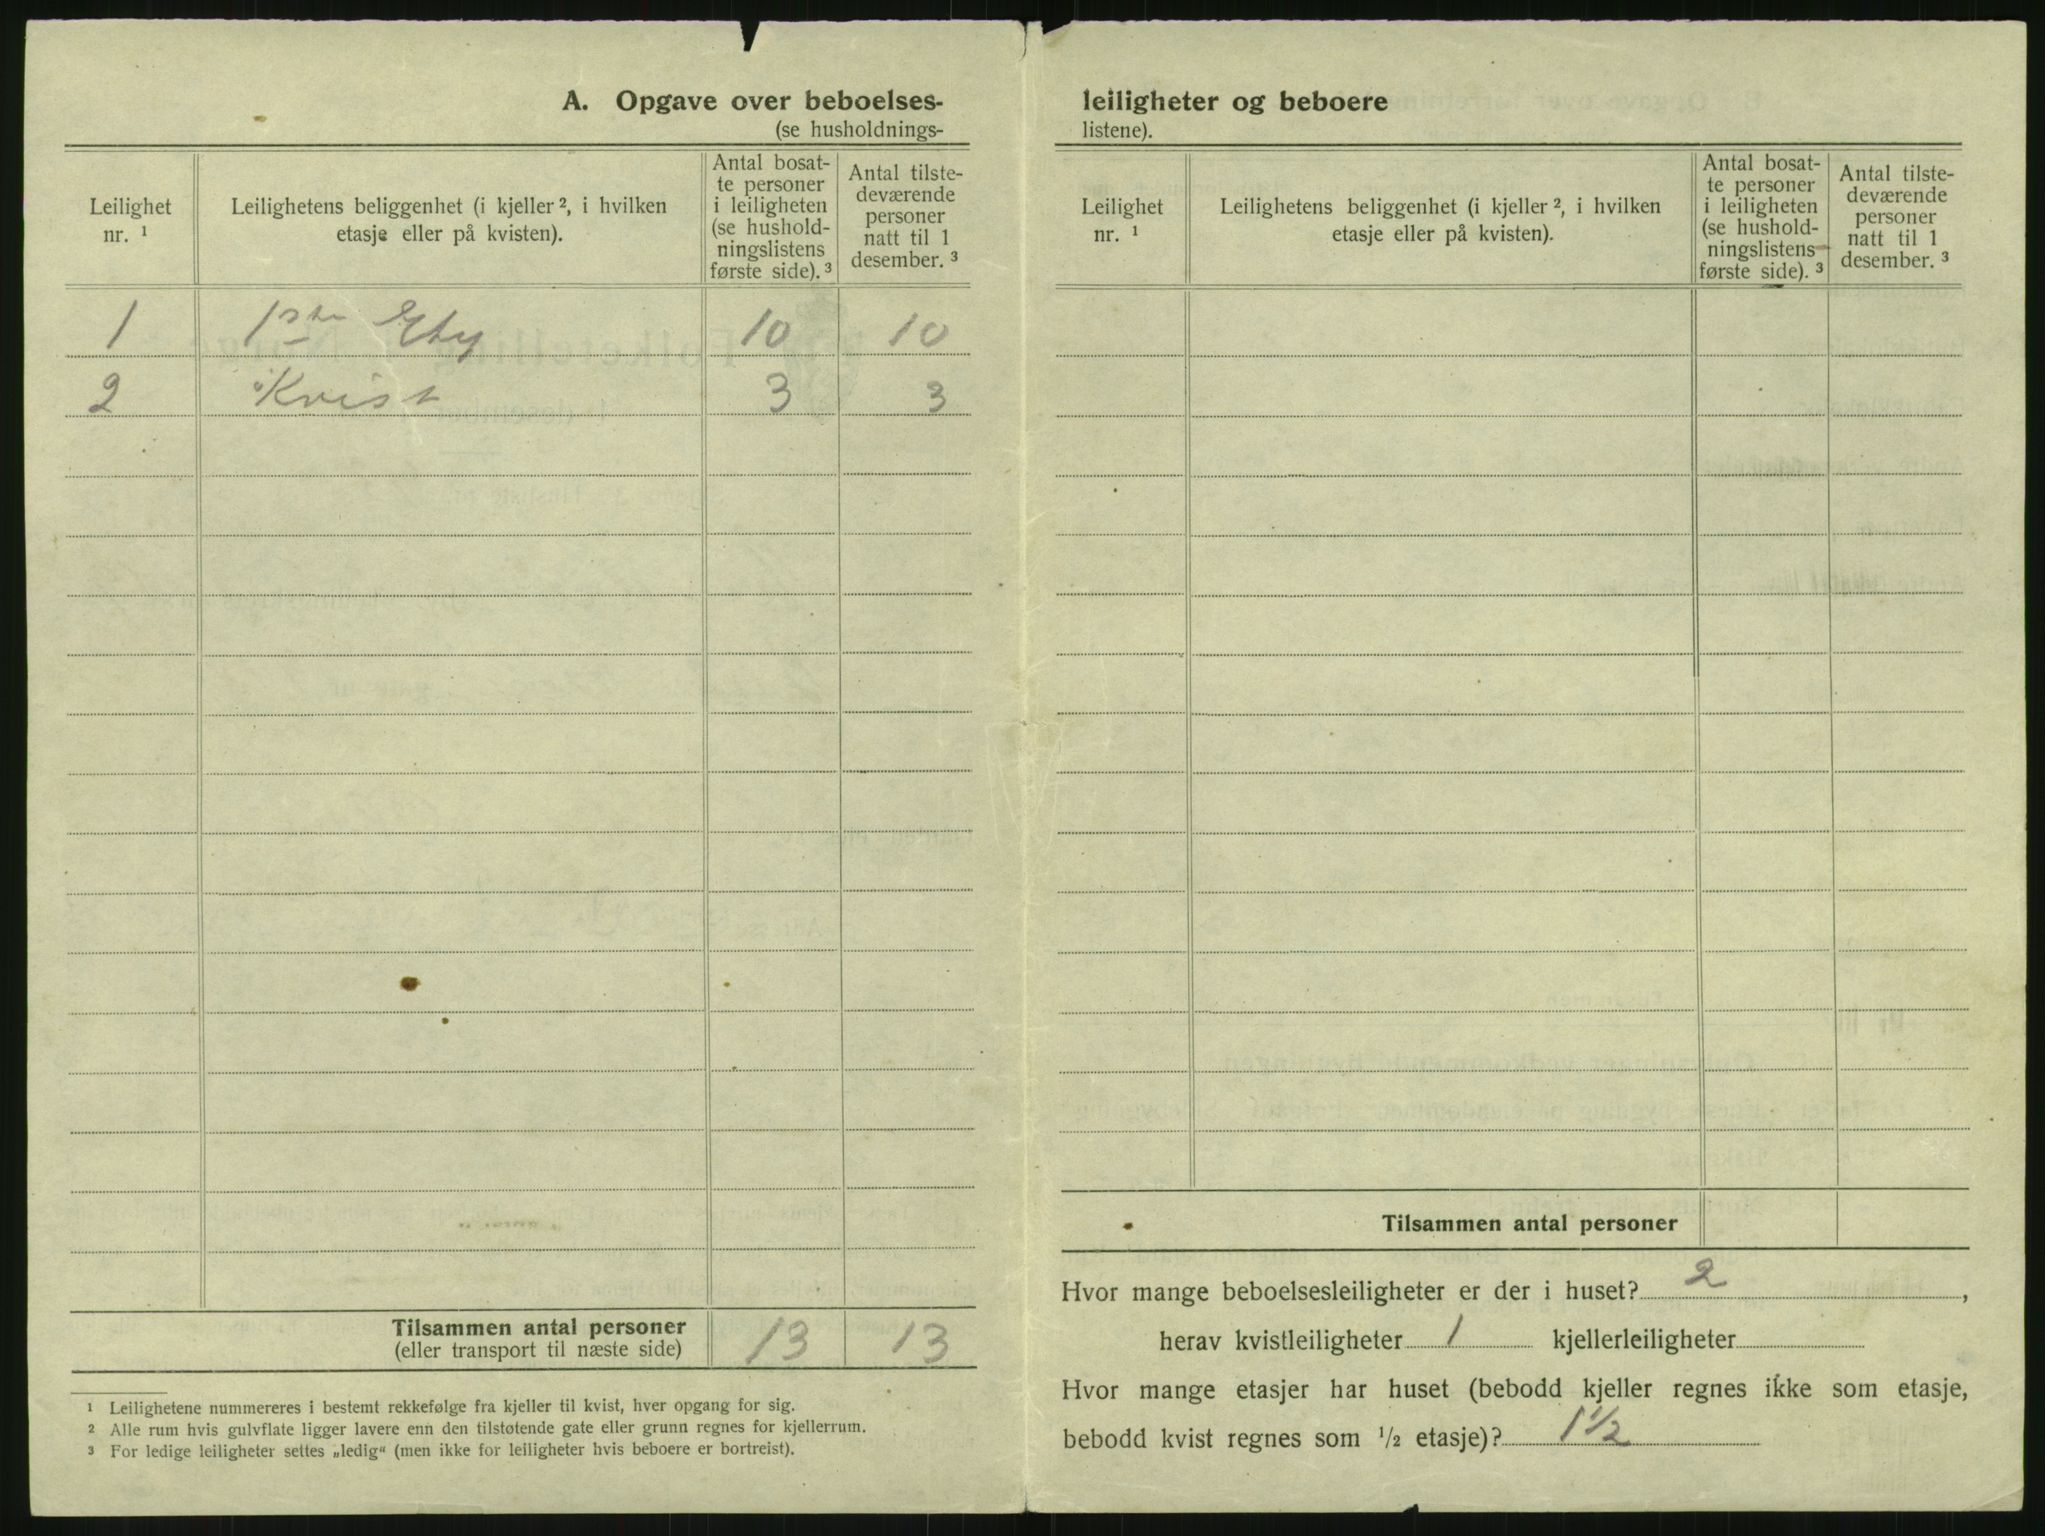 A. Opgave over beboelses-
(se husholdnings-
Leilighet nr. ¹
Leilighetens beliggenhet (i kjeller ², i hvilken etasje eller på kvisten).
Antal bosat-
te personer
i leiligheten
(se hushold-
ningslistens
første side). ³
Antal tilste-
deværende
personer
natt til 1
desember. ³
1 1ste Etg 10 10
2 Kvist 3 3
Tilsammen antal personer 13 13
(eller transport til næste side)
¹ Leilighetene nummereres i bestemt rekkefølge fra kjeller til kvist, hver opgang for sig.
² Alle rum hvis gulvflate ligger lavere enn den tilstøtende gate eller grunn regnes for kjellerrum.
³ For ledige leiligheter settes „ledig“ (men ikke for leiligheter hvis beboere er bortreist).
leiligheter og beboere
listene).
Leilighet nr. ¹
Leilighetens beliggenhet (i kjeller ², i hvilken etasje eller på kvisten).
Antal bosat-
te personer
i leiligheten
(se hushold-
ningslistens
første side). ³
Antal tilste-
deværende
personer
natt til 1
desember. ³
Tilsammen antal personer
Hvor mange beboelsesleiligheter er der i huset? 2 ,
herav kvistleiligheter 1 kjellerleiligheter
Hvor mange etasjer har huset (bebodd kjeller regnes ikke som etasje,
bebodd kvist regnes som ½ etasje)? 1½